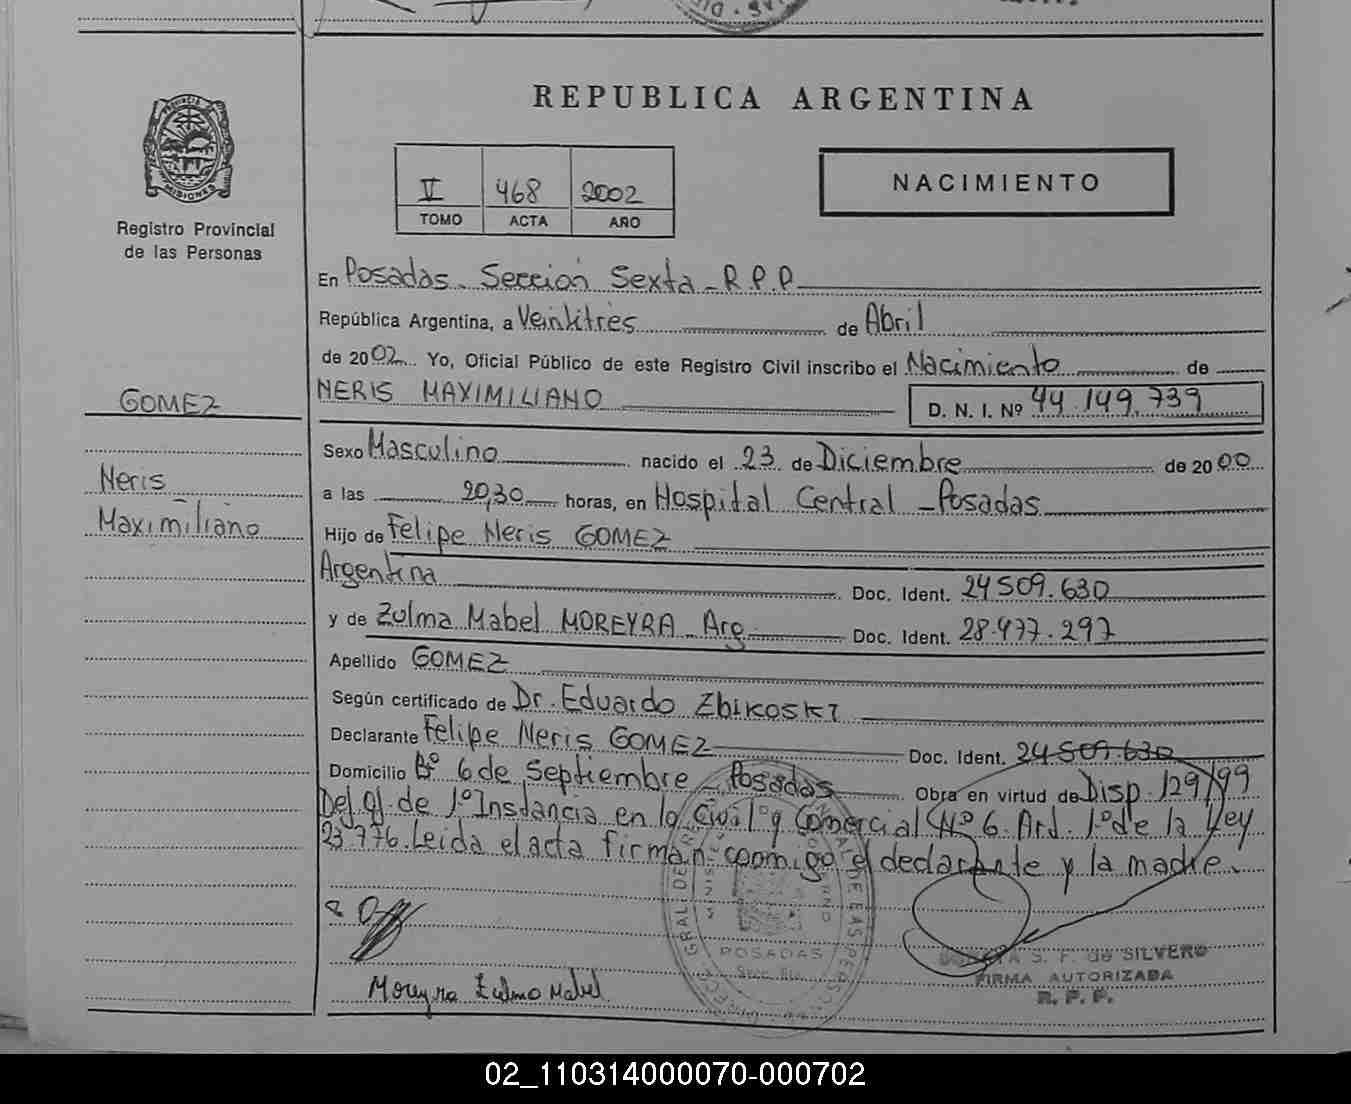 REPUBLICA ARGENTINA
PROVINCIA DE MISIONES
Registro Provincial
de las Personas
V 468 2002
TOMO ACTA AÑO
NACIMIENTO
En Posadas - Sección Sexta - R.P.P
República Argentina, a Veintitres de Abril
de 2002 Yo, Oficial Público de este Registro Civil inscribo el Nacimiento de
NERIS MAXIMILIANO D. N. I. Nº 44.149.739
GOMEZ
Neris
Maximiliano
Sexo Masculino nacido el 23 de Diciembre de 2000
a las 20,30 horas, en Hospital Central - Posadas
Hijo de Felipe Neris GOMEZ
Argentina Doc. Ident. 24509.630
y de Zulma Mabel MOREYRA - Arg Doc. Ident. 28.477.297
Apellido GOMEZ
Según certificado de Dr. Eduardo Zbikoski
Declarante Felipe Neris GOMEZ Doc. Ident. 24509.630
Domicilio Bº 6 de Septiembre - Posadas Obra en virtud de Disp. 129/99
Del J. de 1º Instancia en lo Civil y Comercial Nº 6. Art. 1º de la Ley
23.776. Leida el acta firman conmigo el declarante y la madre.
POSADAS
Moreyra Zulma Mabel
S. F. de SILVERO
FIRMA AUTORIZADA
R. P. P.
02_110314000070-000702